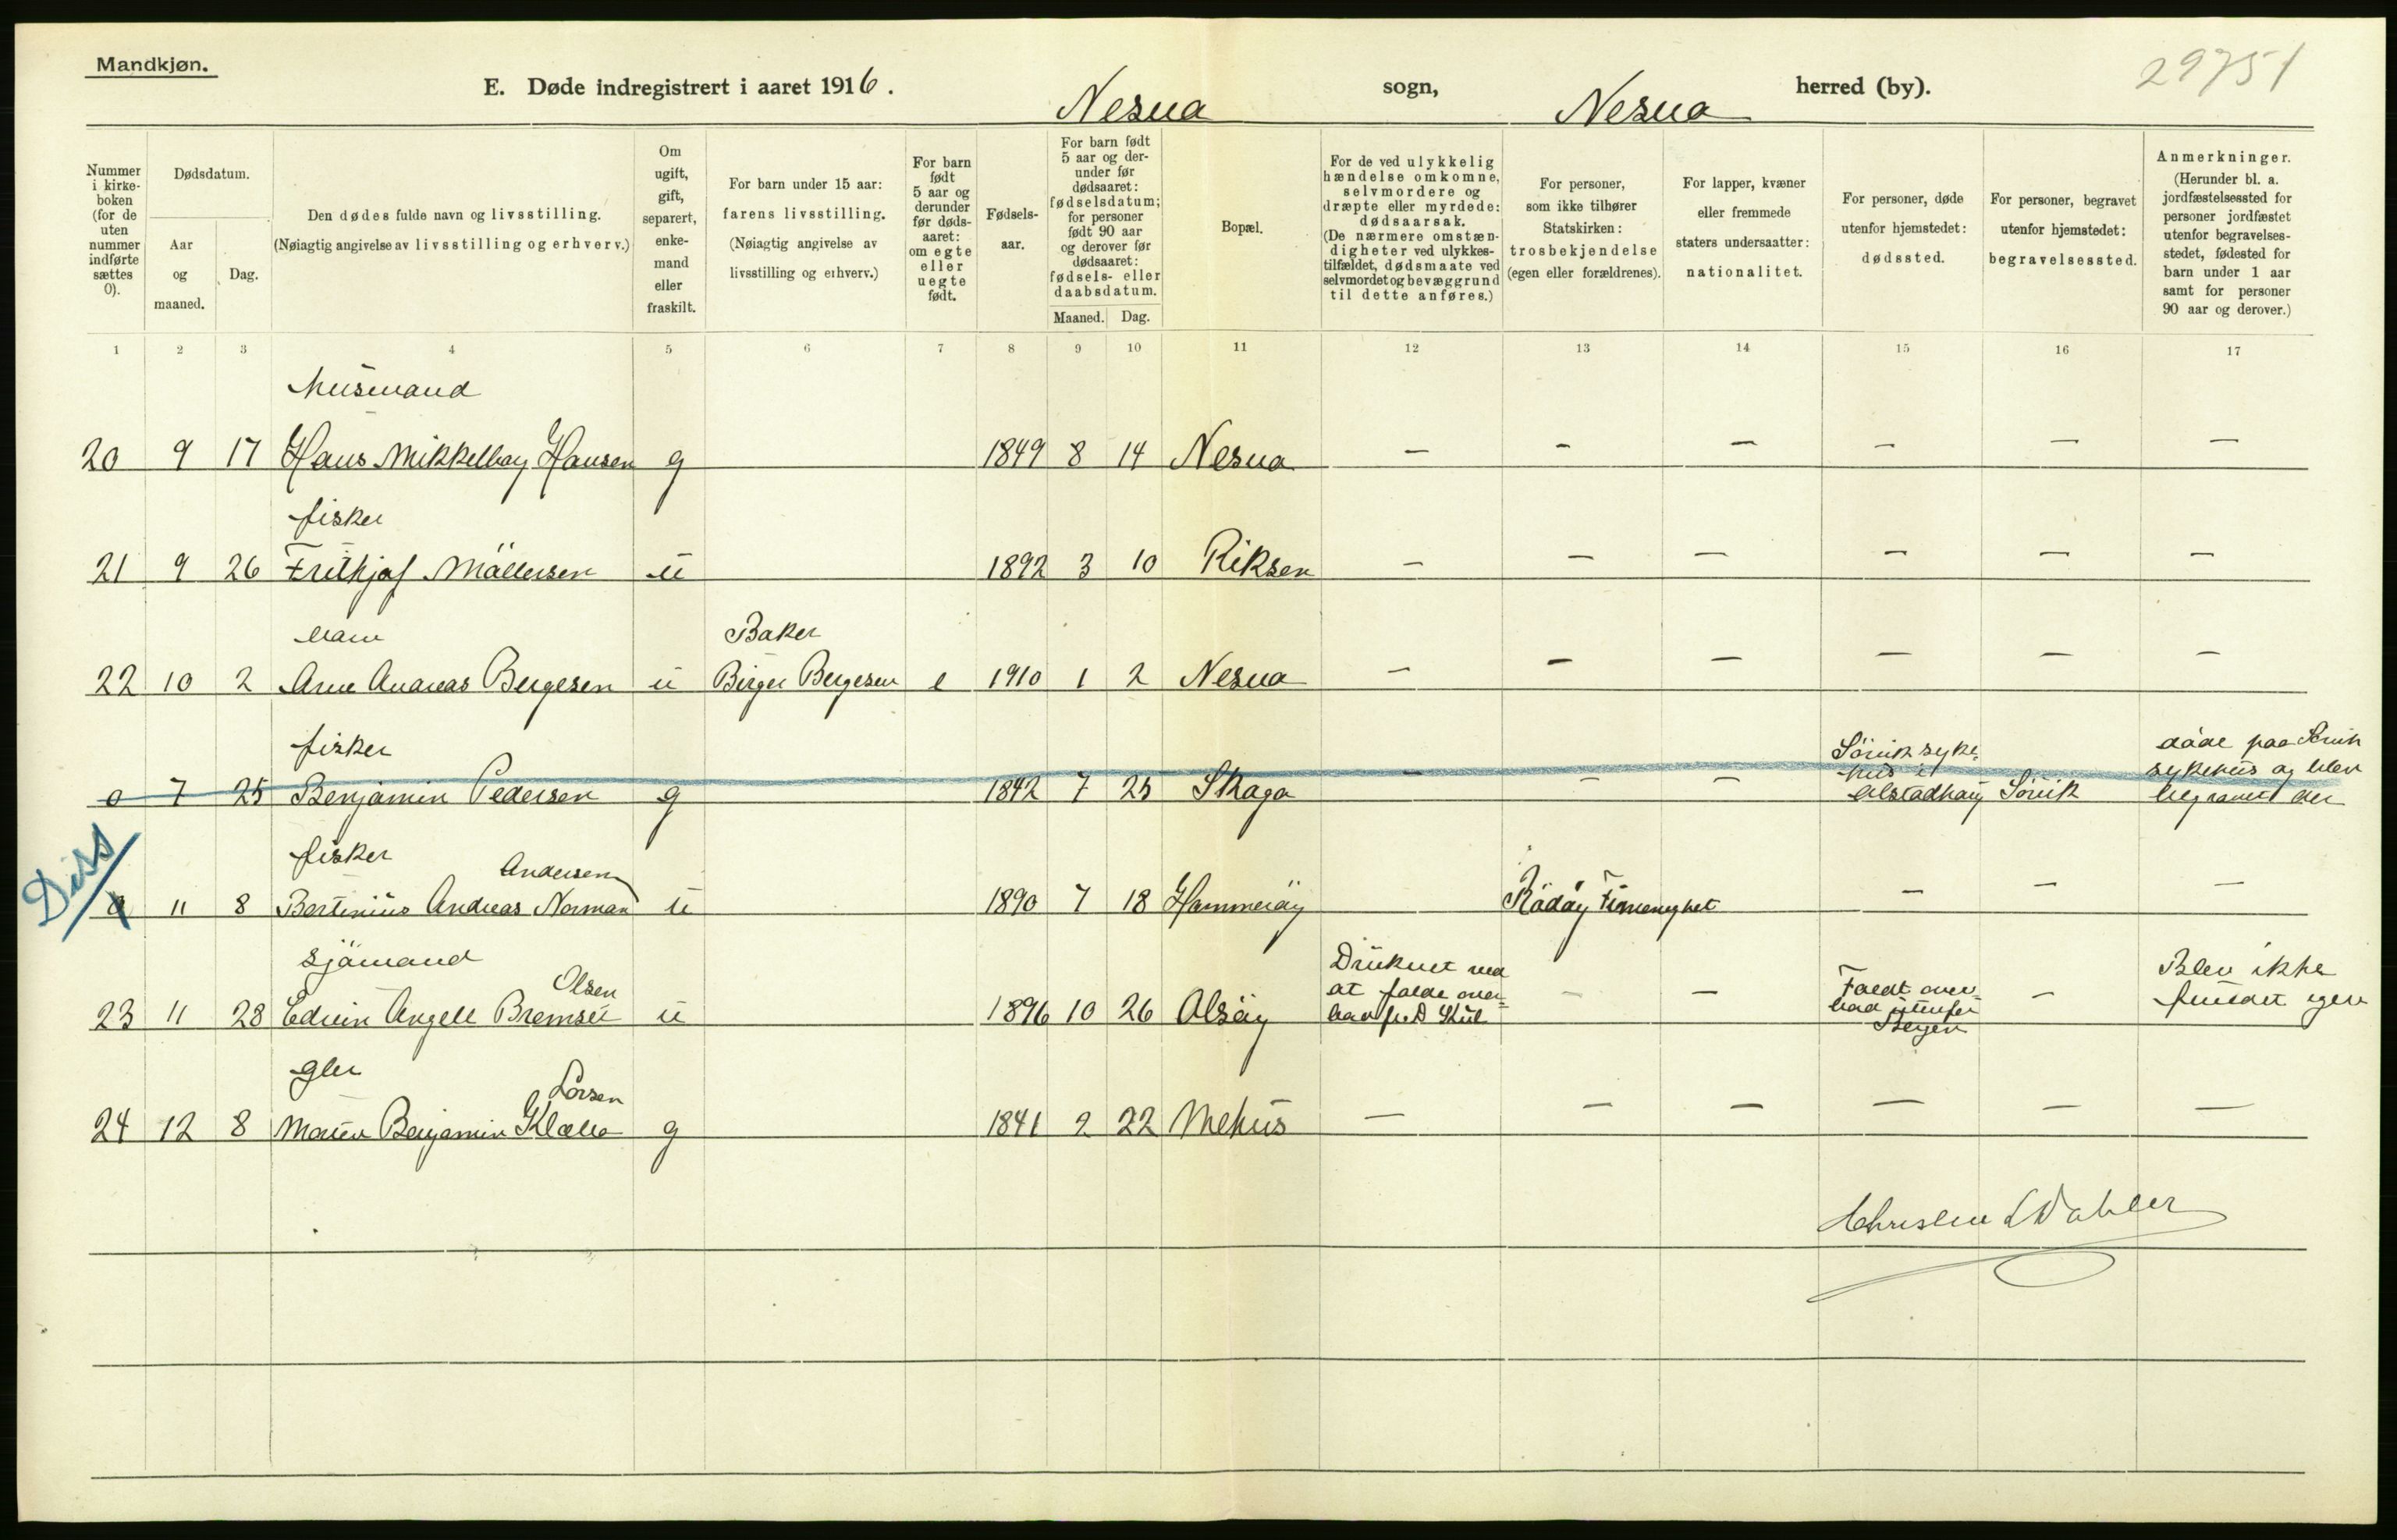 Mandkjøn.
29751
E. Døde indregistrert i aaret 1916. Nesna sogn, Nesna herred (by).
Nummer i kirkeboken (for de uten nummer indførte sættes 0).
Dødsdatum.
Aar og maaned.
Dag.
Den dødes fulde navn og livsstilling.
(Nøiagtig angivelse av livsstilling og erhverv.)
Om ugift, gift, separert, enkemand eller fraskilt.
For barn under 15 aar: farens livsstilling.
(Nøiagtig angivelse av livsstilling og erhverv.)
For barn født 5 aar og derunder før dødsaaret: om egte eller uegte født.
Fødselsaar.
For barn født 5 aar og derunder før dødsaaret: fødselsdatum; for personer født 90 aar og derover før dødsaaret: fødsels- eller daabsdatum.
Maaned. Dag.
Bopæl.
For de ved ulykkelig hændelse omkomne, selvmordere og dræpte eller myrdede: dødsaarsak.
(De nærmere omstændigheter ved ulykkestilfældet, dødsmaate ved selvmordet og bevæggrund til dette anføres.)
For personer, som ikke tilhører Statskirken: trosbekjendelse (egen eller forældrenes).
For lapper, kvæner eller fremmede staters undersaatter: nationalitet.
For personer, døde utenfor hjemstedet: dødssted.
For personer, begravet utenfor hjemstedet: begravelsessted.
Anmerkninger.
(Herunder bl. a. jordfæstelsessted for personer jordfæstet utenfor begravelsesstedet, fødested for barn under 1 aar samt for personer 90 aar og derover.)
1 2 3 4 5 6 7 8 9 10 11 12 13 14 15 16 17
Husmand
20 9 17 Hans Mikkelbay Hansen g 1849 8 14 Nesna – – – – – –
fisker
21 9 26 Frithjof Möllersen ü 1892 3 10 Riksen – – – – – –
barn Baker
22 10 2 Arne Andreas Bergesen ü Birger Bergesen e 1910 1 2 Nesna – – – – – –
fisker
0 7 25 Benjamin Pedersen g 1842 7 25 Skaga – – – Sövik sykehus i Alstadhaug Sövik döde paa Sövik sykehus og blev begravet der
Diss
fisker Andersen
0 11 8 Bertinius Andreas Norman ü 1890 7 18 Hammeröy Rödöy – – –
Sjömand Olsen
23 11 28 Edvin Angell Bremsei ü 1896 10 26 Alsöy Druknet ved at falde overbord – – Faldt overbord utenfor Bergen – Blev ikke fundet igen
Larsen
24 12 8 Morten Benjamin g 1841 2 22 Mehus – – – – – –